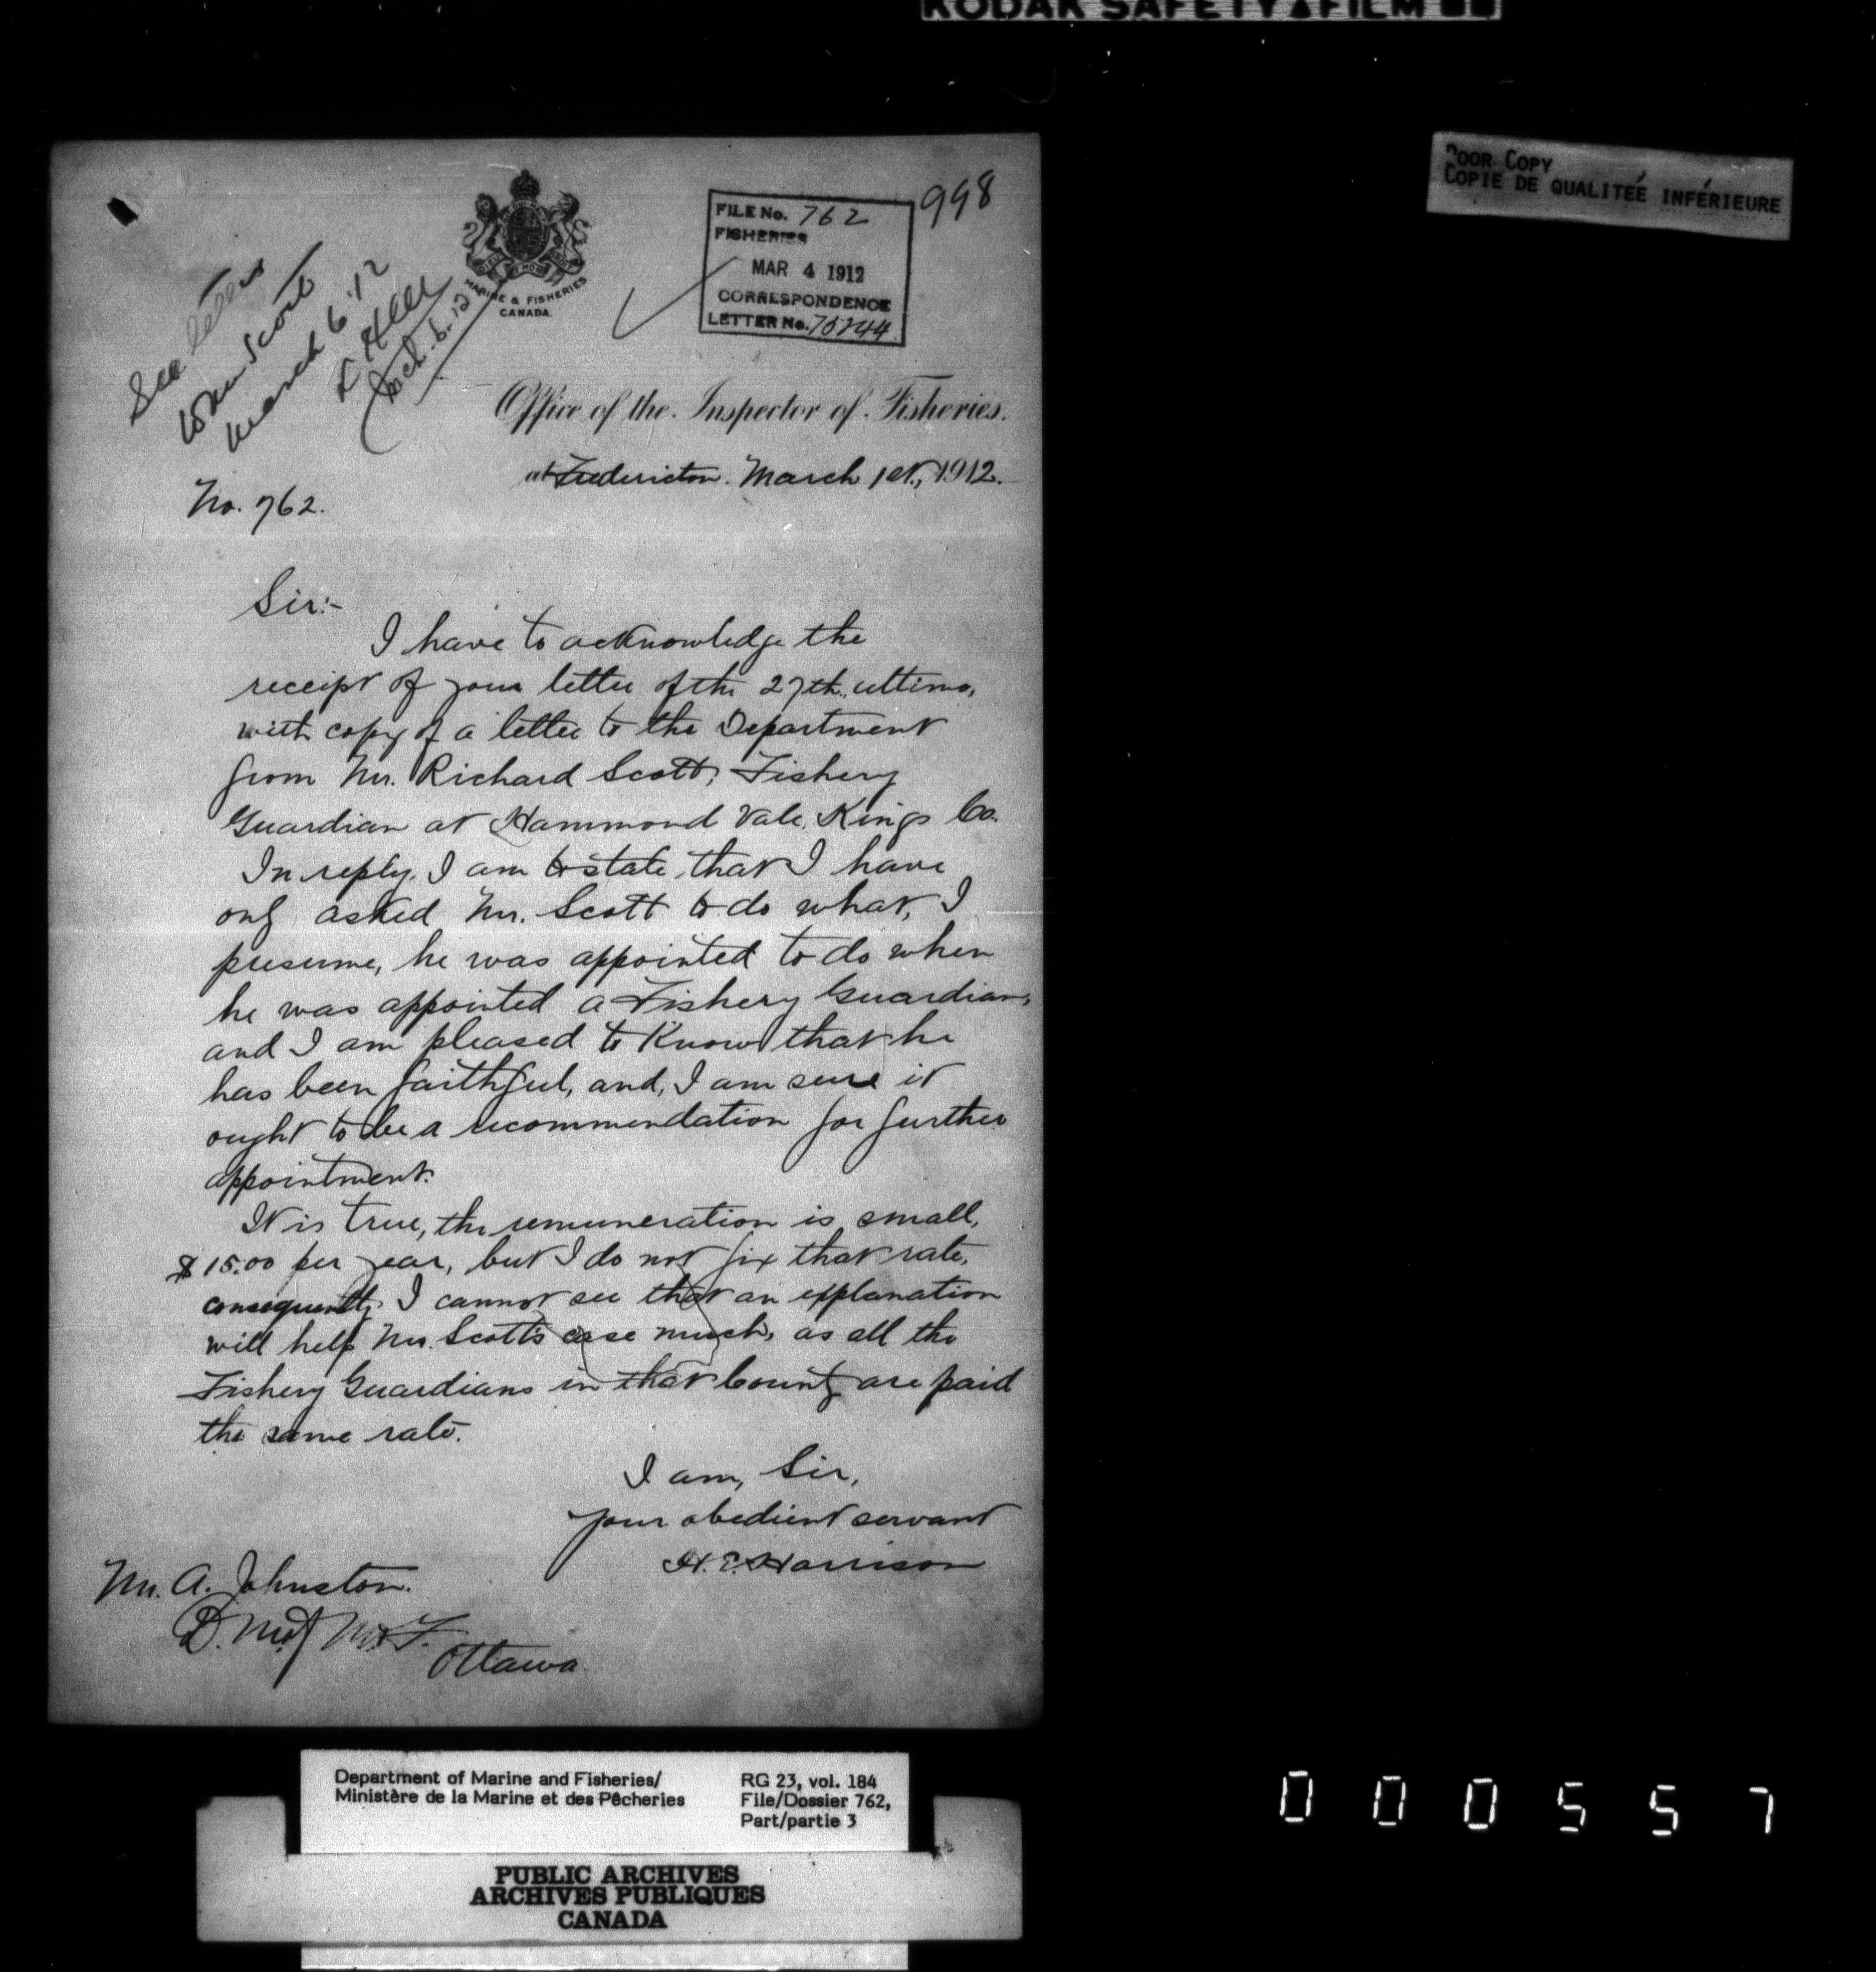 KODAK SAFETY FILM
POOR COPY
COPIE DE QUALITEÉ INFÉRIEURE
998
FILE No. 762
FISHERIES
MAR 4 1912
CORRESPONDENCE
LETTER No.
MARINE & FISHERIES
CANADA.
See letter
to Mr Scott
March 6 '12
Mch. 6. 12
Office of the Inspector of Fisheries.
at Fredericton. March 1st., 1912.
No. 762.
Sir:-
I have to acknowledge the
receipt of your letter of the 27th. ultimo,
with copy of a letter to the Department
from Mr. Richard Scott, Fishery
Guardian at Hammond Vale, Kings Co.
In reply, I am to state, that I have
only asked Mr. Scott to do what, I
presume, he was appointed to do when
he was appointed a Fishery Guardian,
and I am pleased to know that he
has been faithful, and, I am sure it
ought to be a recommendation for further
appointment.
It is true, the remuneration is small,
$15.00 per year, but I do not fix that rate,
consequently, I cannot see that an explanation
will help Mr. Scott's case much, as all the
Fishery Guardians in that County are paid
the same rate.
I am, Sir,
your obedient servant
H. E. Harrison
Mr. A. Johnston.
D. M. of M. & F.
Ottawa.
Department of Marine and Fisheries/
Ministère de la Marine et des Pêcheries
RG 23, vol. 184
File/Dossier 762,
Part/partie 3
PUBLIC ARCHIVES
ARCHIVES PUBLIQUES
CANADA
000557